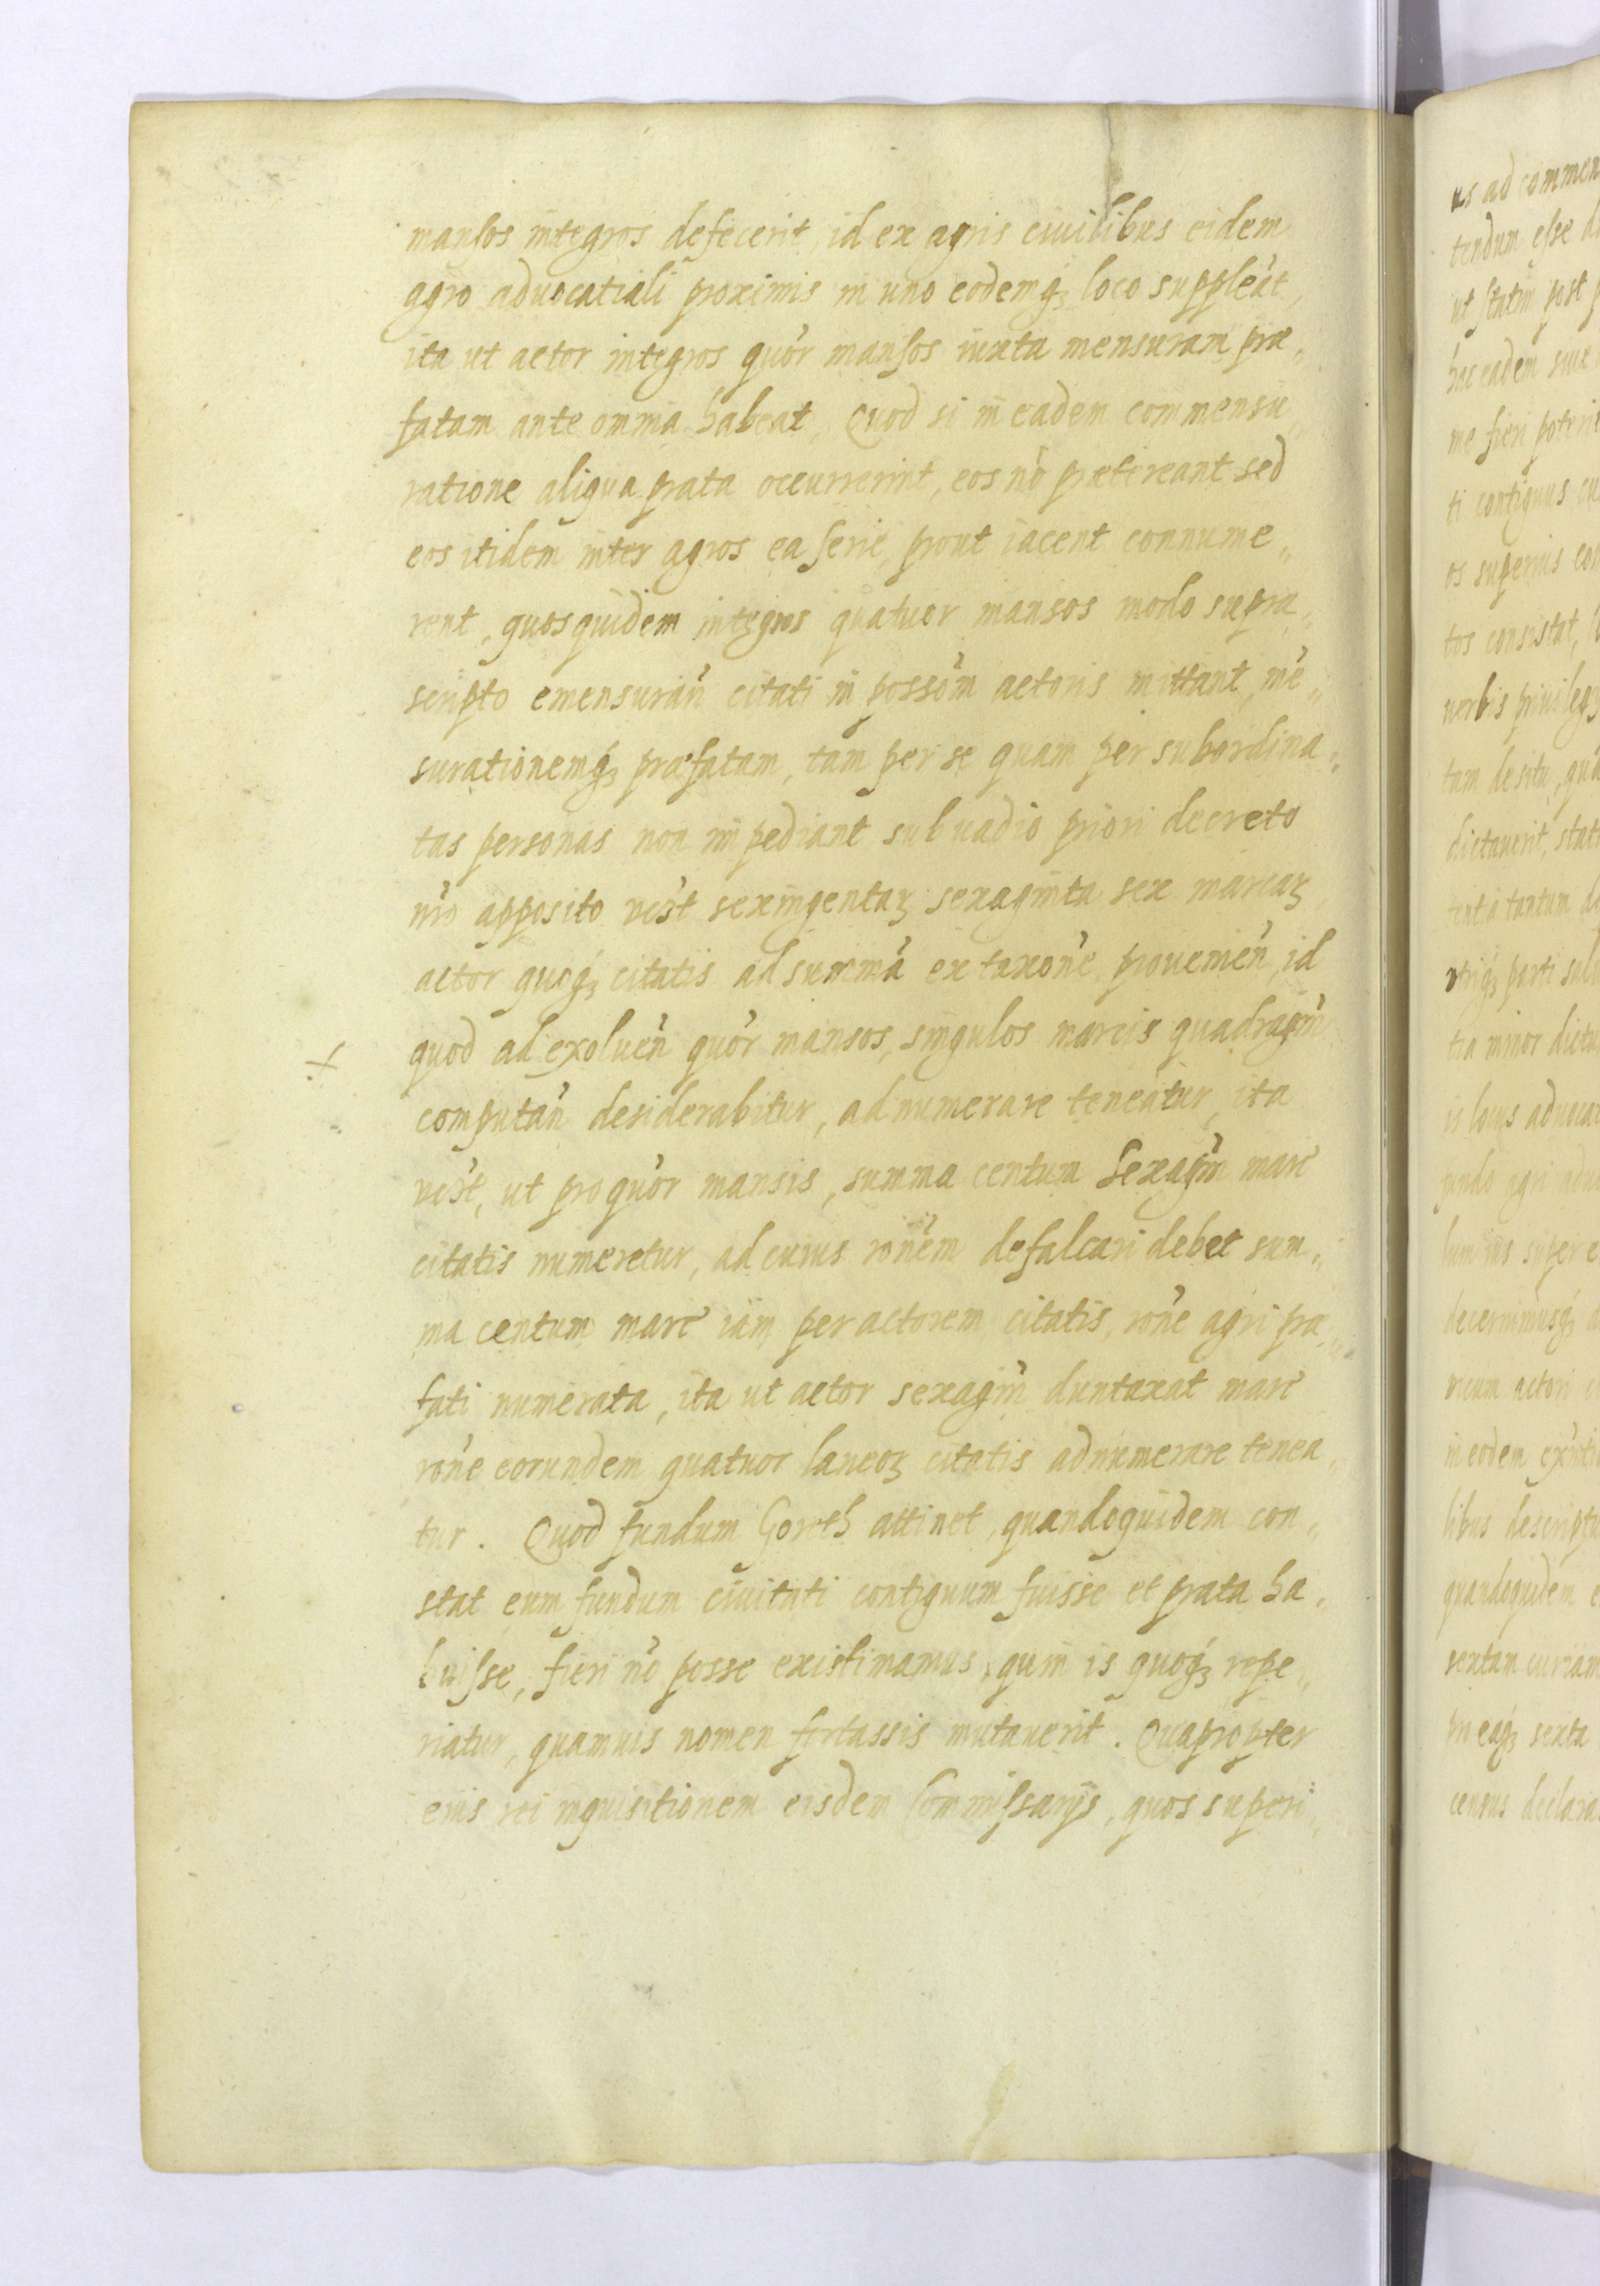 mansos integros defecerit, id ex agris ciuilibus eidem
agro aduocatiali proximis in uno eodemq; loco suppleat,
ita ut actor integros quor mansos iuxta mensuram præ„
fatam ante omnia habeat, Quod si in eadem commensu„
ratione aliqua prata occurrerint, eos nō prætereant sed
eos itidem inter agros ea serie, prout iacent connume„
rent, quos quidem integros quatuor mansos modo supra„
scripto emensuran̄ citati in possōm actoris mittant, mē„
surationemq; præfatam, tam per se quam per subordina„
tas personas non impediant sub uadio priori decreto
nrō apposito vēt sexingentaꝝ sexaginta sex marcaꝝ
actor quoq; citatis ad summā ex taxōne prouenien̄, id
quod ad exoluen̄ quor mansos, singulos marcis quadragin̄
computan̄ desiderabitur, adnumerare teneatur, ita
vēt, ut pro quor mansis, summa centum sexagin̄ marc
citatis numeretur, ad cuius rōnem defalcari debet sum„
ma centum marc iam per actorem citatis, rōne agri præ„
fati numerata, ita ut actor sexagin̄ duntaxat marc
rōne eorundem quatuor laneoꝝ citatis adnumerare tenea„
tur. Quod fundum Goreth attinet, quandoquidem con„
stat eum fundum ciuitati contiguum fuisse et prata ha„
buisse, fieri nō posse existimamus, quin is quoq; repe„
riatur, quamuis nomen fortassis mutauerit. Quapropter
eius rei inquisitionem eisdem Commissarijs, quos superi„
us ad commen
tendum esse
ut statim post
hac eadem siue
me fieri poterit
ti contiguus
os superius
tos consistat,
verbis priuileg
tam de situ,
dictauerit,
tantum
utriq; parti
tia minor
is locus aduocat
agri
super
decernimusq;
actori
in eodem
libus descript
quandoquidem
sexta
census declara